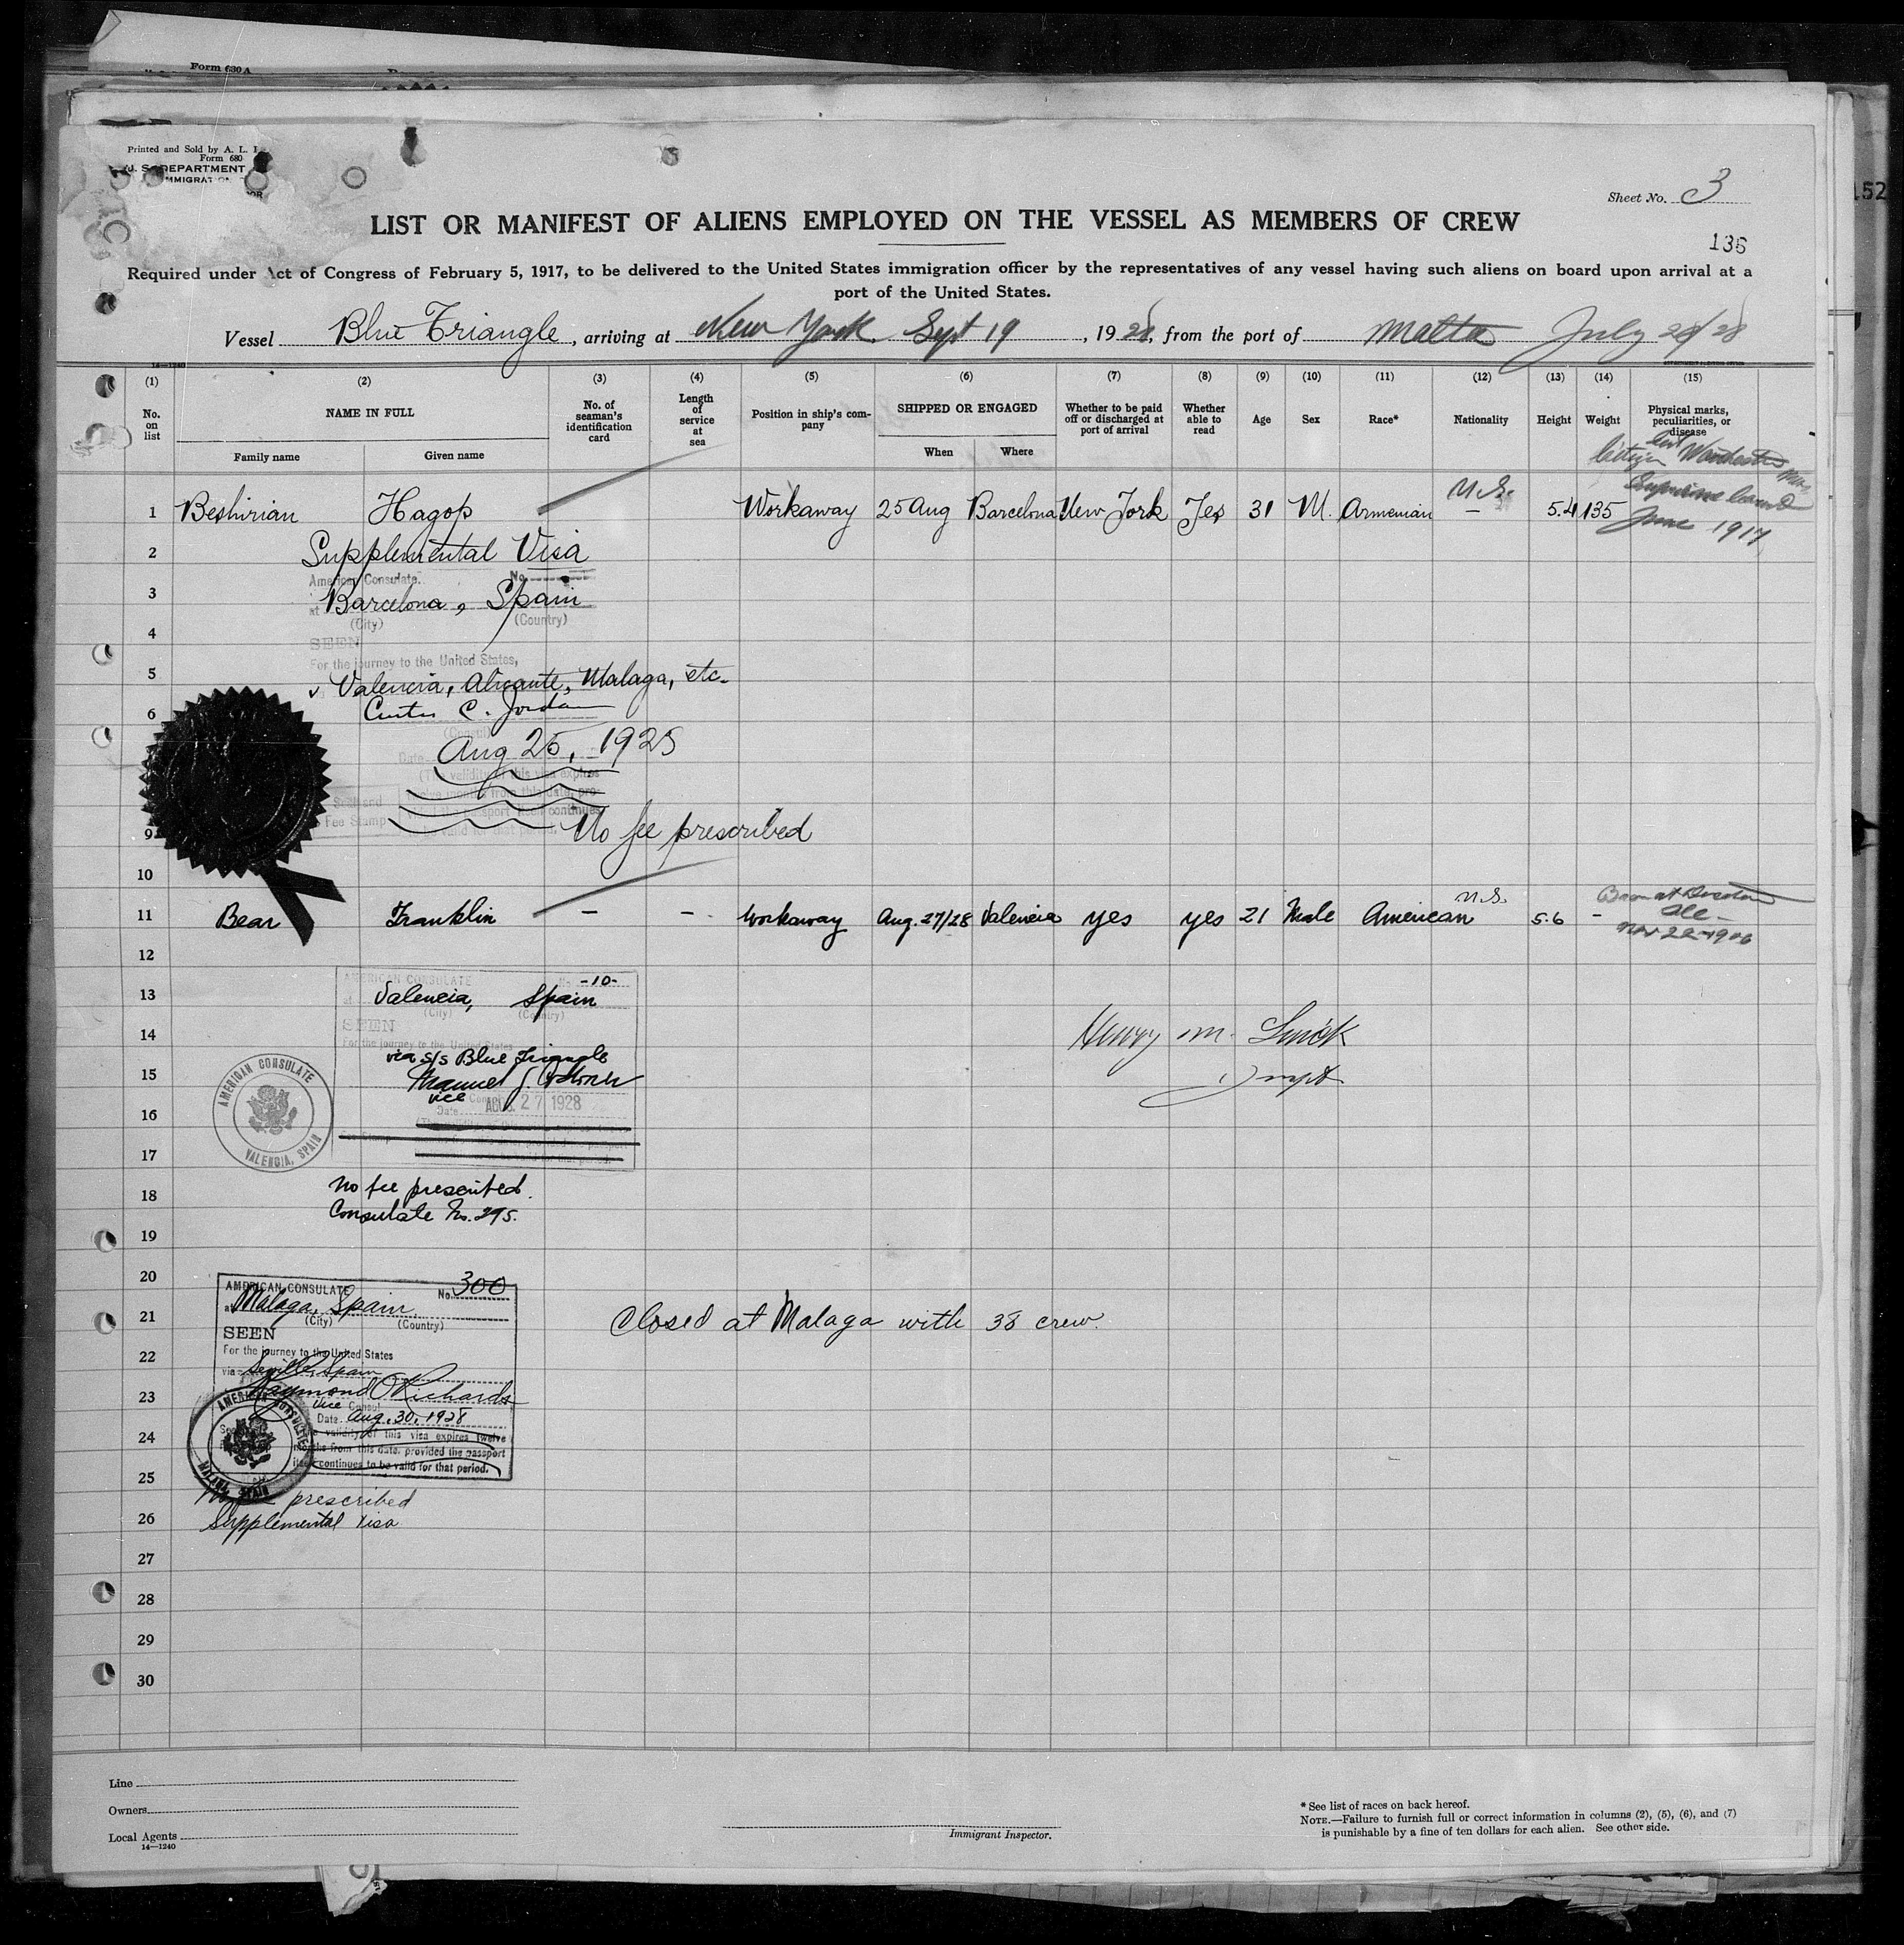 Form 630 A
Printed and Sold by A. L.
Form 680
U. S. DEPARTMENT
IMMIGRATION
Sheet No. 3
152
LIST OR MANIFEST OF ALIENS EMPLOYED ON THE VESSEL AS MEMBERS OF CREW
136
Required under Act of Congress of February 5, 1917, to be delivered to the United States immigration officer by the representatives of any vessel having such aliens on board upon arrival at a
port of the United States.
Vessel Blue Triangle, arriving at New York Sept 19, 1928, from the port of Malta July 28/28
14—1240
(1) (2) (3) (4) (5) (6) (7) (8) (9) (10) (11) (12) (13) (14) (15)
No. on list NAME IN FULL No. of seaman's identification card Length of service at sea Position in ship's company SHIPPED OR ENGAGED Whether to be paid off or discharged at port of arrival Whether able to read Age Sex Race* Nationality Height Weight Physical marks, peculiarities, or disease
Family name Given name When Where
Citizen Worchester Mass
1 Beshirian Hagop Workaway 25 Aug Barcelona New York Yes 31 M. Armenian U.S. — 5.4 135 Supreme Court
June 1917
2 Supplemental Visa
American Consulate. No.
3 at Barcelona, Spain
(City) (Country)
4
SEEN
For the journey to the United States,
5 v Valencia, Alicante, Malaga, etc.
6 Curtis C. Jordan
(Consul)
Date Aug 25, 1928
(The validity of this visa expires
twelve months from this date, pro-
passport itself continues
Fee Stamp valid for that period.
9 No fee prescribed
10
11 Bear Franklin — — Workaway Aug. 27/28 Valencia yes yes 21 Male American U.S. 5.6 — Born at
Nov 22-1906
12
AMERICAN CONSULATE No. -10-
13 at Valencia, Spain
(City) (Country)
14 SEEN
For the journey to the United States
Henry M.
via s/s Blue Triangle
15 Manuel J.
vice Consul
16 Date AUG. 27 1928
AMERICAN CONSULATE
VALENCIA, SPAIN
17
18 No fee prescribed.
Consulate No. 295.
19
20 AMERICAN CONSULATE No. 300
21 at Malaga, Spain
(City) (Country)
Closed at Malaga with 38 crew.
SEEN
22 For the journey to the United States
via Seville, Spain
23 Raymond O Richards
Vice Consul
Date Aug. 30, 1928
24 validity of this visa expires twelve
months from this date, provided the passport
itself continues to be valid for that period.
AMERICAN CONSULATE
MALAGA, SPAIN
25
No fee prescribed
26 Supplemental Visa
27
28
29
30
Line
Owners
Local Agents
14—1240
Immigrant Inspector.
* See list of races on back hereof.
NOTE.—Failure to furnish full or correct information in columns (2), (5), (6), and (7)
is punishable by a fine of ten dollars for each alien. See other side.